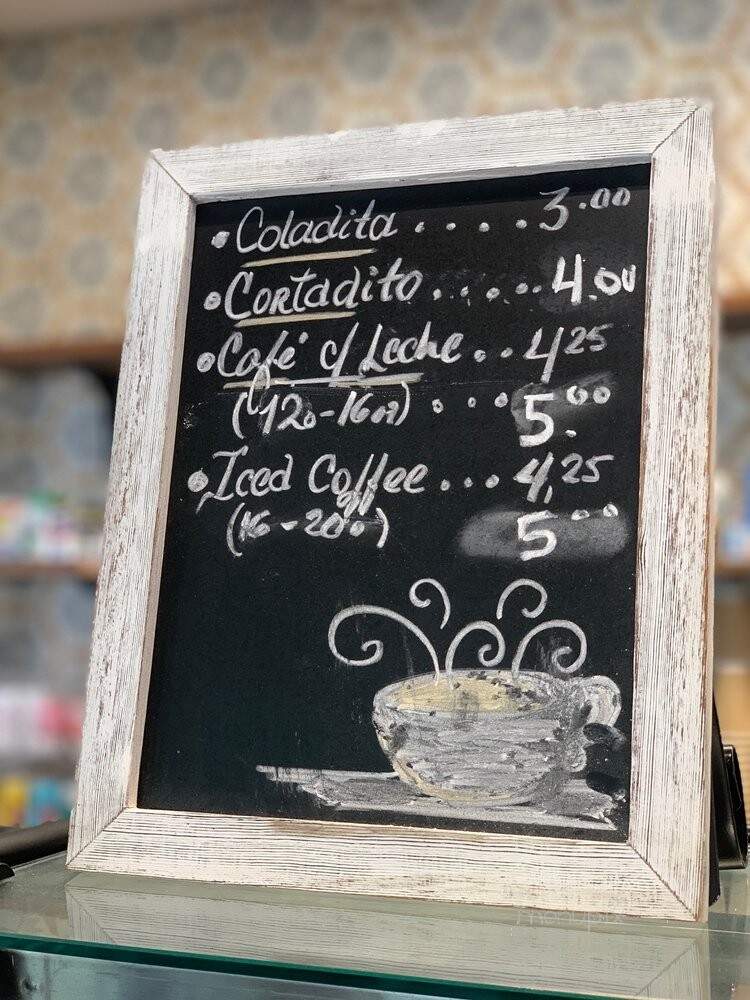 • Coladita . . . . . 3.00
• Cortadito . . . . . 4.00
• Café c/ Leche . . 4.25
(12o-16oz) . . . . 5.00
• Iced Coffee . . . 4.25
(16-20o) 5.00